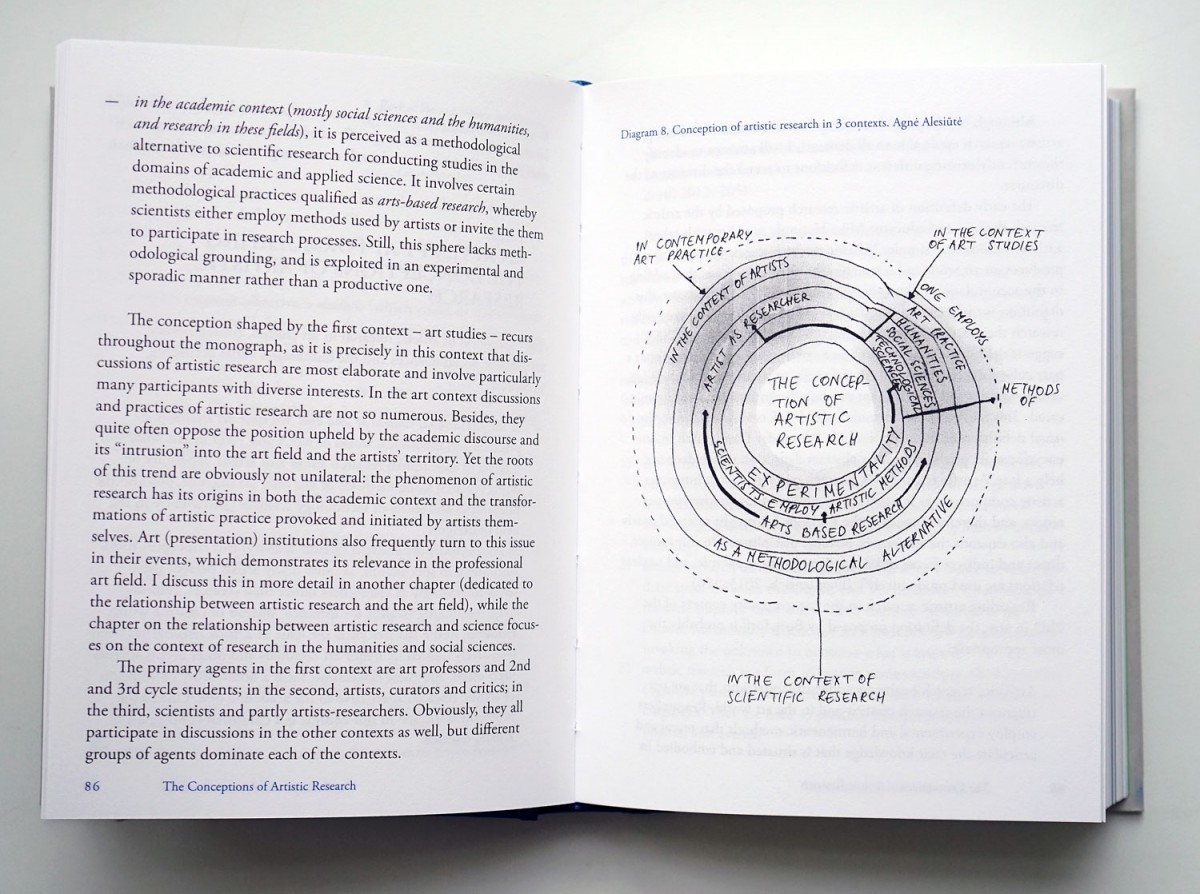 — in the academic context (mostly social sciences and the humanities,
and research in these fields), it is perceived as a methodological
alternative to scientific research for conducting studies in the
domains of academic and applied science. It involves certain
methodological practices qualified as arts-based research, whereby
scientists either employ methods used by artists or invite the them
to participate in research processes. Still, this sphere lacks meth-
odological grounding, and is exploited in an experimental and
sporadic manner rather than a productive one.
The conception shaped by the first context – art studies – recurs
throughout the monograph, as it is precisely in this context that dis-
cussions of artistic research are most elaborate and involve particularly
many participants with diverse interests. In the art context discussions
and practices of artistic research are not so numerous. Besides, they
quite often oppose the position upheld by the academic discourse and
its “intrusion” into the art field and the artists’ territory. Yet the roots
of this trend are obviously not unilateral: the phenomenon of artistic
research has its origins in both the academic context and the transfor-
mations of artistic practice provoked and initiated by artists them-
selves. Art (presentation) institutions also frequently turn to this issue
in their events, which demonstrates its relevance in the professional
art field. I discuss this in more detail in another chapter (dedicated to
the relationship between artistic research and the art field), while the
chapter on the relationship between artistic research and science focus-
es on the context of research in the humanities and social sciences.
The primary agents in the first context are art professors and 2nd
and 3rd cycle students; in the second, artists, curators and critics; in
the third, scientists and partly artists-researchers. Obviously, they all
participate in discussions in the other contexts as well, but different
groups of agents dominate each of the contexts.
86 The Conceptions of Artistic Research
Diagram 8. Conception of artistic research in 3 contexts. Agnė Alesiūtė
IN CONTEMPORARY
ART PRACTICE-
IN THE CONTEXT
OF ART STUDIES
IN THE CONTEXT OF ARTISTS
ARTIST AS RESEARCHER
ONE EMPLOYS
ART PRACTICE
HUMANITIES
SOCIAL SCIENCES
TECHNOLOGICAL
SCIENCES
METHODS
OF
THE CONCEP-
TION OF
ARTISTIC
RESEARCH
EXPERIMENTALITY
SCIENTISTS EMPLOY ARTISTIC METHODS
ARTS BASED RESEARCH
AS A METHODOLOGICAL ALTERNATIVE
IN THE CONTEXT OF
SCIENTIFIC RESEARCH